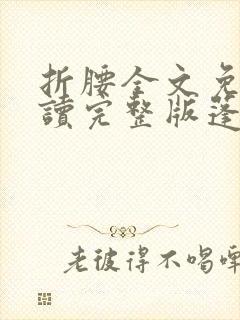 折腰全文免
讀完整版蓬
老彼得不喝啤